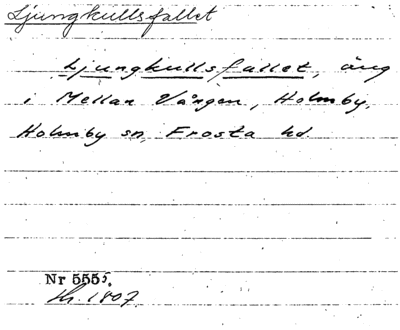 Ljungkullsfallet
Ljungkullsfallet, äng
i Mellan Vången, Holmby,
Holmby sn, Frosta hd.
Nr 555.
1807.